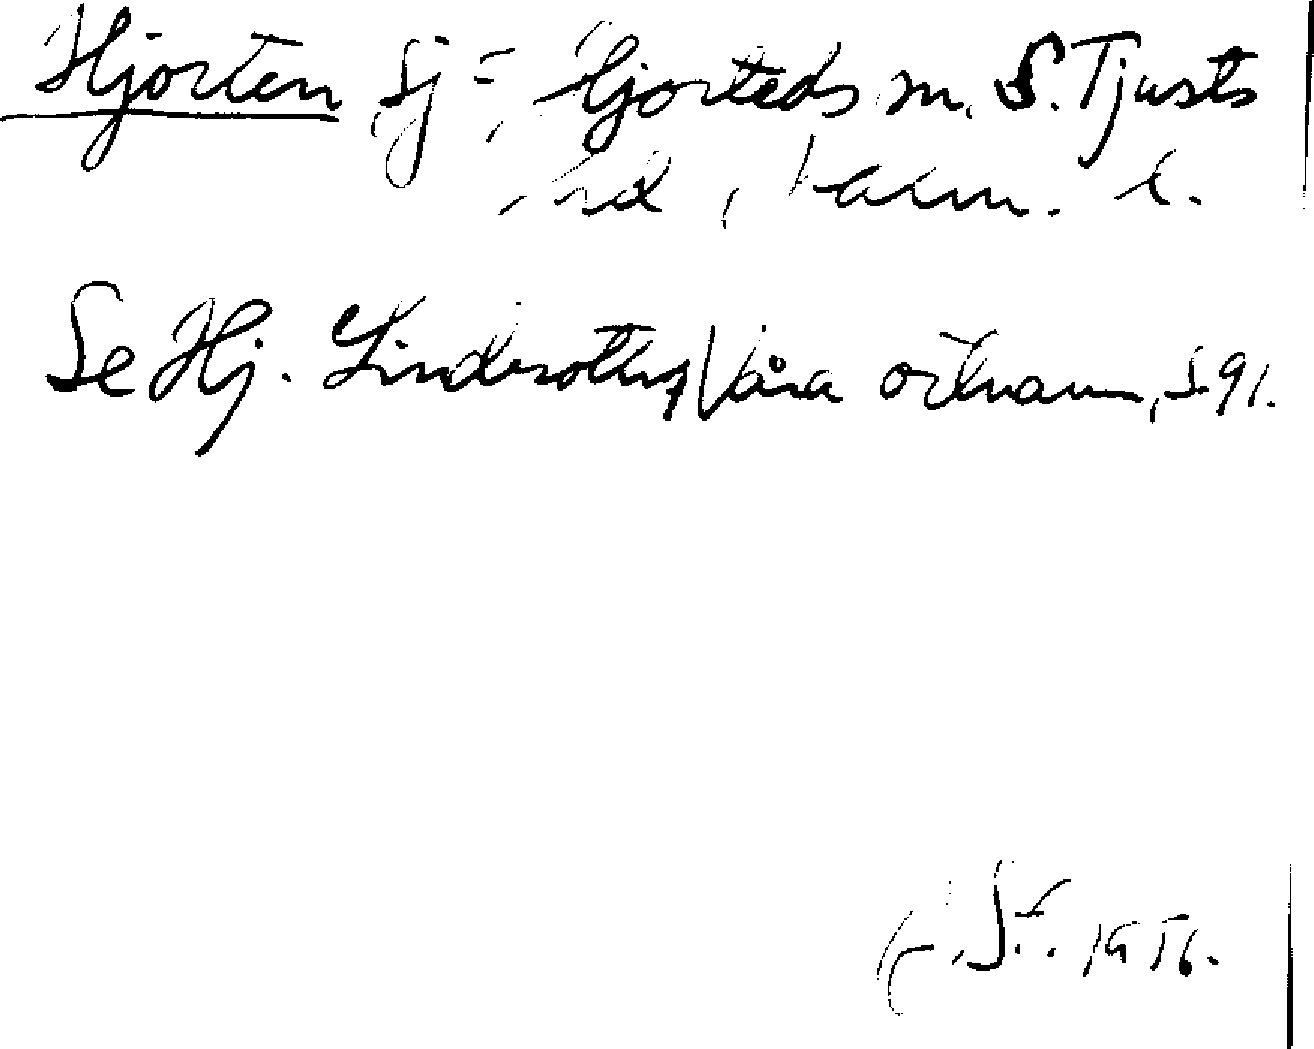 Hjorten sj i Hjorteds sn, S. Tjusts
hd, Kalm. l.
Se Hj. Lindroth, Våra ortnamn, s. 91.
1956.